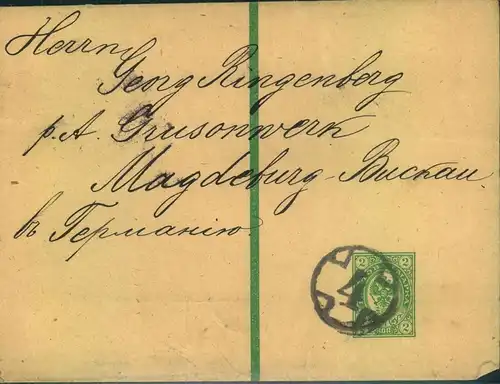 Herrn
Georg Ringenberg
p. A. Grusonwerk
Magdeburg-Buckau
въ Германію.
4
2 2
2